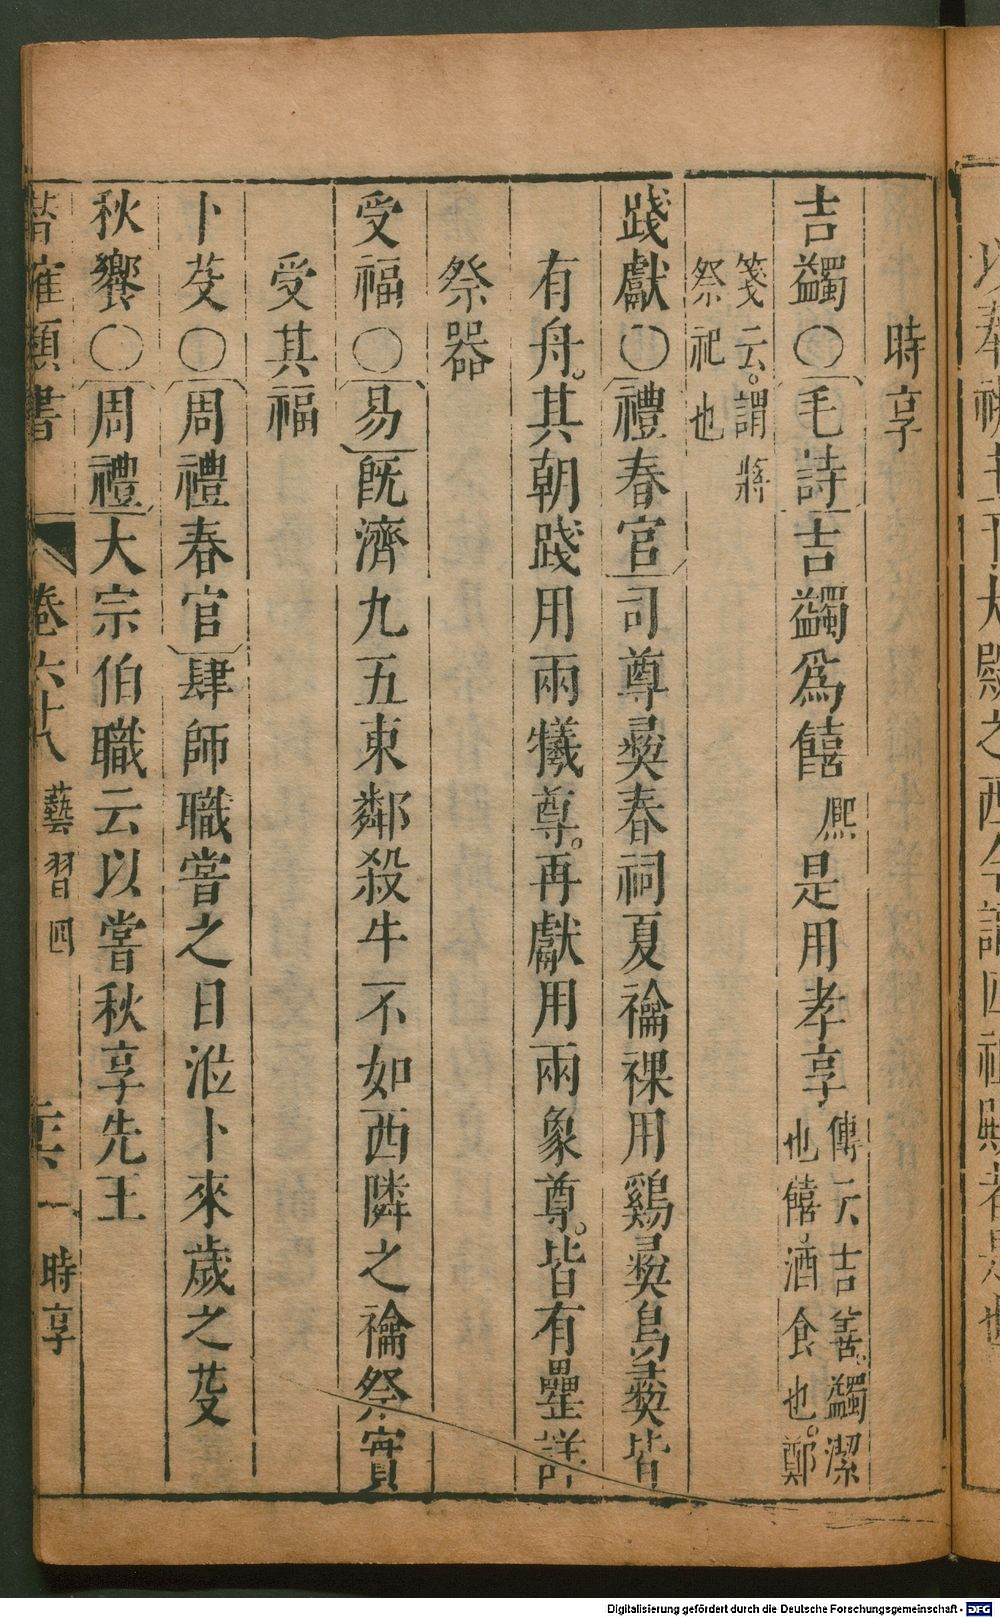 時享
吉蠲○毛詩吉蠲爲饎熙是用孝享傳云吉善。蠲潔也饎酒食也。鄭
箋云。謂將祭祀也
踐獻○禮春官司尊彝春祠夏禴祼用鷄彝鳥彝皆
有舟。其朝踐用兩犧尊。再獻用兩象尊。皆有罍詳
祭器
受福○易旣濟九五東鄰殺牛不如西隣之禴祭實
受其福
卜芟○周禮春官肆師職嘗之日涖卜來歲之芟
秋饗○周禮大宗伯職云以嘗秋享先王
類書 卷六十八 藝習四 時享
Digitalisierung gefördert durch die Deutsche Forschungsgemeinschaft - DFG